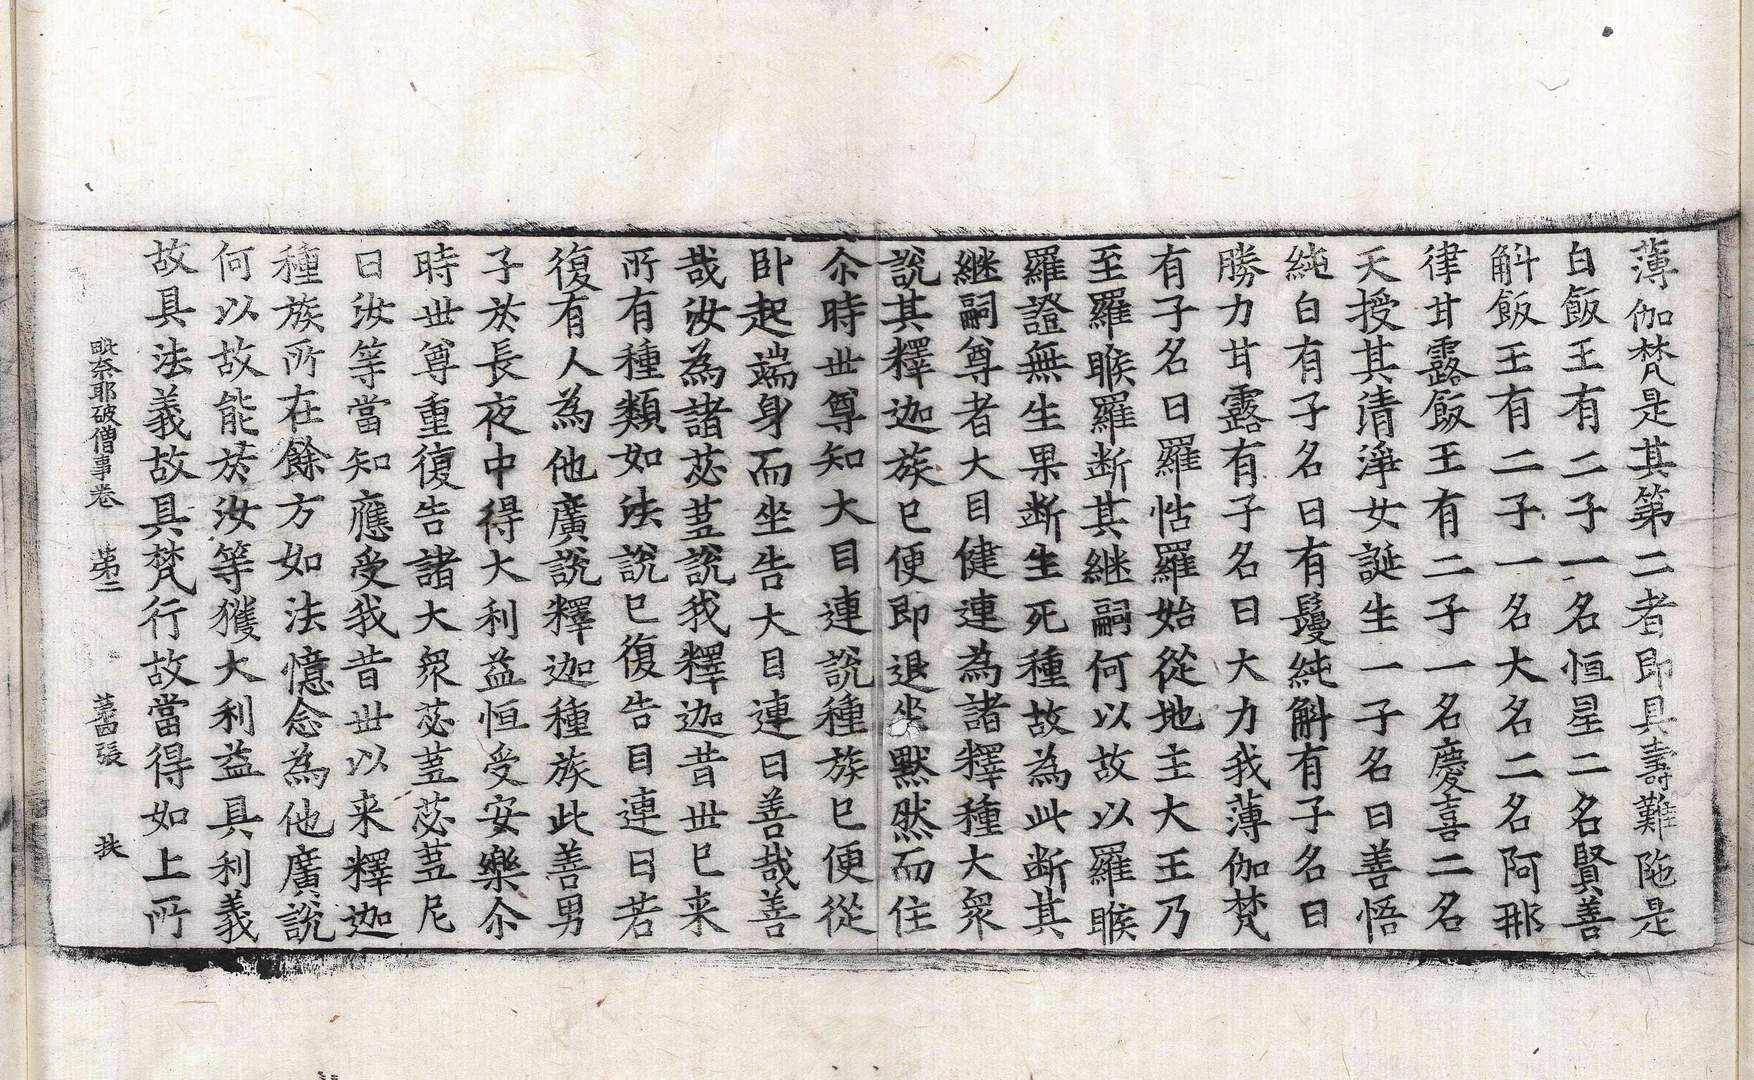 薄伽梵是其第二者即具壽難陁是
白飯王有二子一名恒星二名賢善
斛飯王有二子一名大名二名阿那
律甘露飯王有二子一名慶喜二名
天授其清淨女誕生一子名曰善悟
純白有子名曰有鬘純斛有子名曰
勝力甘露有子名曰大力我薄伽梵
有子名曰羅怙羅始從地主大王乃
至羅睺羅斷其継嗣何以故以羅睺
羅證無生果断生死種故為此断其
継嗣尊者大目健連為諸釋種大衆
說其釋迦族已便即退坐默然而住
尒時世尊知大目連說種族已便從
卧起端身而坐告大目連曰善哉善
哉汝為諸苾蒭說我釋迦昔世已来
所有種類如法說已復告目連曰若
復有人為他廣說釋迦種族此善男
子於長夜中得大利益恒受安樂尒
時世尊重復告諸大衆苾蒭苾蒭尼
曰汝等當知應受我昔世以来釋迦
種族所在餘方如法憶念為他廣說
何以故能於汝等獲大利益具利義
故具法義故具梵行故當得如上所
毗奈耶破僧事卷 第二 第四張 扶